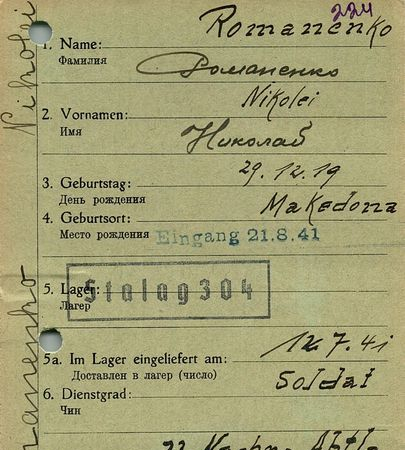 224
Romanenko
1. Name:
Фамилия
Романенко
Nikolei
2. Vornamen:
Имя
Николай
29.12.19
3. Geburtstag:
День рождения
Makedona
4. Geburtsort:
Место рождения
Eingang 21.8.41
5. Lager:
Лагер
Stalag 304
12.7.41
5a. Im Lager eingeliefert am:
Доставлен в лагер (число)
Soldat
6. Dienstgrad:
Чин
Nikolei